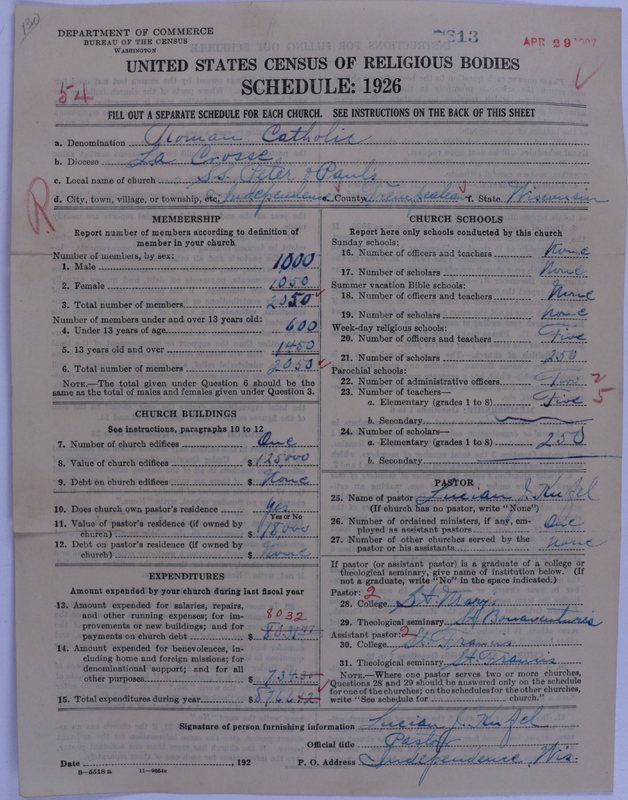 130
DEPARTMENT OF COMMERCE
BUREAU OF THE CENSUS
WASHINGTON
7613
APR 29
UNITED STATES CENSUS OF RELIGIOUS BODIES
SCHEDULE: 1926
54
FILL OUT A SEPARATE SCHEDULE FOR EACH CHURCH. SEE INSTRUCTIONS ON THE BACK OF THIS SHEET
a. Denomination Roman Catholic
b. Diocese La Crosse
c. Local name of church S.S. Peter & Pauls
d. City, town, village, or township, etc. Independence e. County Trempealeau f. State. Wisconsin
R
MEMBERSHIP
Report number of members according to definition of
member in your church
Number of members, by sex:
1. Male 1000
2. Female 1050
3. Total number of members 2050
Number of members under and over 13 years old:
4. Under 13 years of age 600
5. 13 years old and over 1450
6. Total number of members 2050
NOTE.—The total given under Question 6 should be
same as the total of males and females given under Question 3.
CHURCH BUILDINGS
See instructions, paragraphs 10 to 12
7. Number of church edifices One
8. Value of church edifices $ 125000
9. Debt on church edifices $ None
10. Does church own pastor's residence Yes
Yes or No
11. Value of pastor's residence (if owned by
church) $ 18000
12. Debt on pastor's residence (if owned by
church) $ None
EXPENDITURES
Amount expended by your church during last fiscal year
13. Amount expended for salaries, repairs,
and other running expenses; for im-
provements or new buildings; and for
payments on church debt $ 8032
14. Amount expended for benevolences, in-
cluding home and foreign missions; for
denominational support; and for all
other purposes $
15. Total expenditures during year $
CHURCH SCHOOLS
Report here only schools conducted by this church
Sunday schools:
16. Number of officers and teachers None
17. Number of scholars None
Summer vacation Bible schools:
18. Number of officers and teachers None
19. Number of scholars none
Week-day religious schools:
20. Number of officers and teachers Five
21. Number of scholars 250
Parochial schools:
22. Number of administrative officers Two 2
23. Number of teachers—
a. Elementary (grades 1 to 8) Five 5
b. Secondary
24. Number of scholars—
a. Elementary (grades 1 to 8) 250
b. Secondary
PASTOR
25. Name of pastor Lucian J. Kufel
(If church has no pastor, write "None")
26. Number of ordained ministers, if any, em-
ployed as assistant pastors One
27. Number of other churches served by the
pastor or his assistants None
If pastor (or assistant pastor) is a graduate of a college or
theological seminary, give name of institution below. (If
not a graduate, write "No" in the space indicated.)
Pastor: 2
28. College St. Marys
29. Theological seminary St Bonaventures
Assistant pastor: 2
30. College St. Francis
31. Theological seminary St Francis
NOTE.—Where one pastor serves two or more churches,
Questions 28 and 29 should be answered only on the schedule
for one of the churches; on the schedules for the other churches,
write "See schedule for church."
Signature of person furnishing information Lucian J. Kufel
Official title Pastor
Date , 192 P. O. Address Independence, Wis.
8—5518a 11—9664a